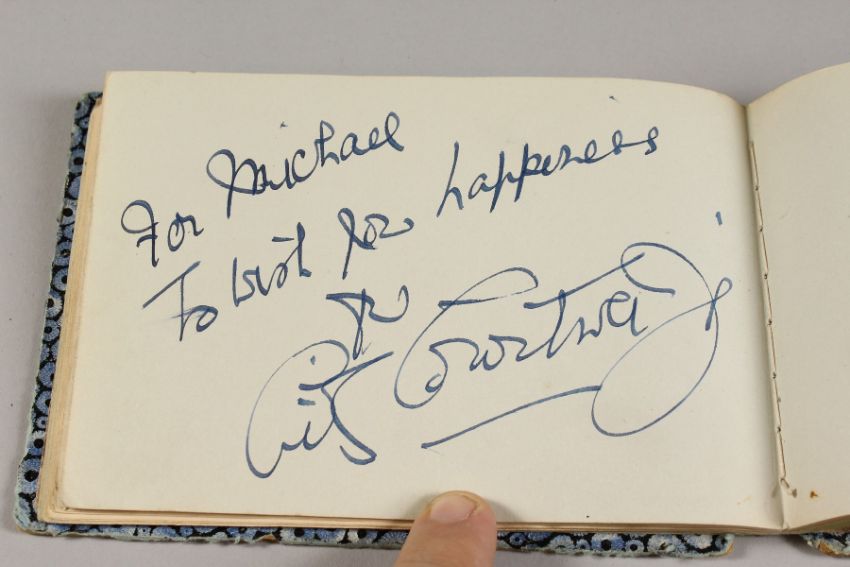 For Michael
To wish you happiness
Cis Courtneidge